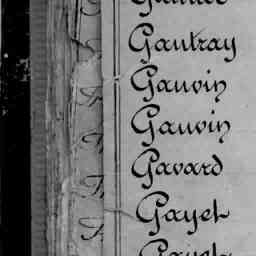 Gautray
Gauvin
Gauvin
Gavard
Gayet